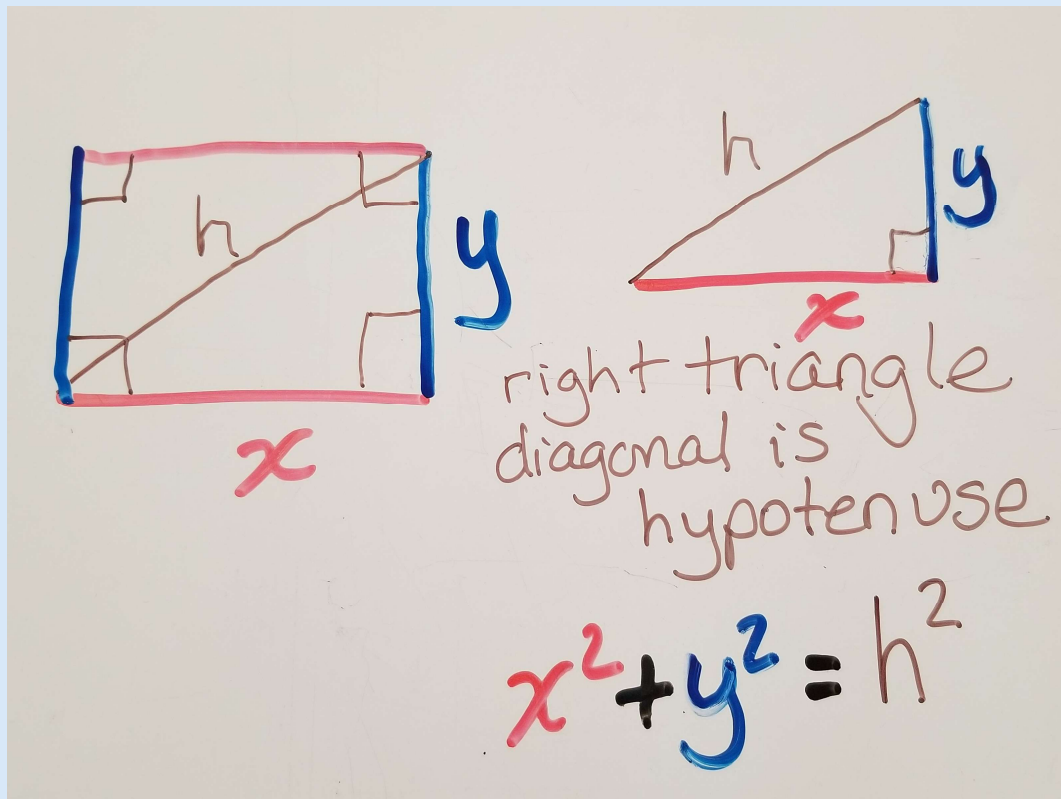 h
y
x
h
y
x
right triangle
diagonal is
hypotenuse
x²+y²=h²